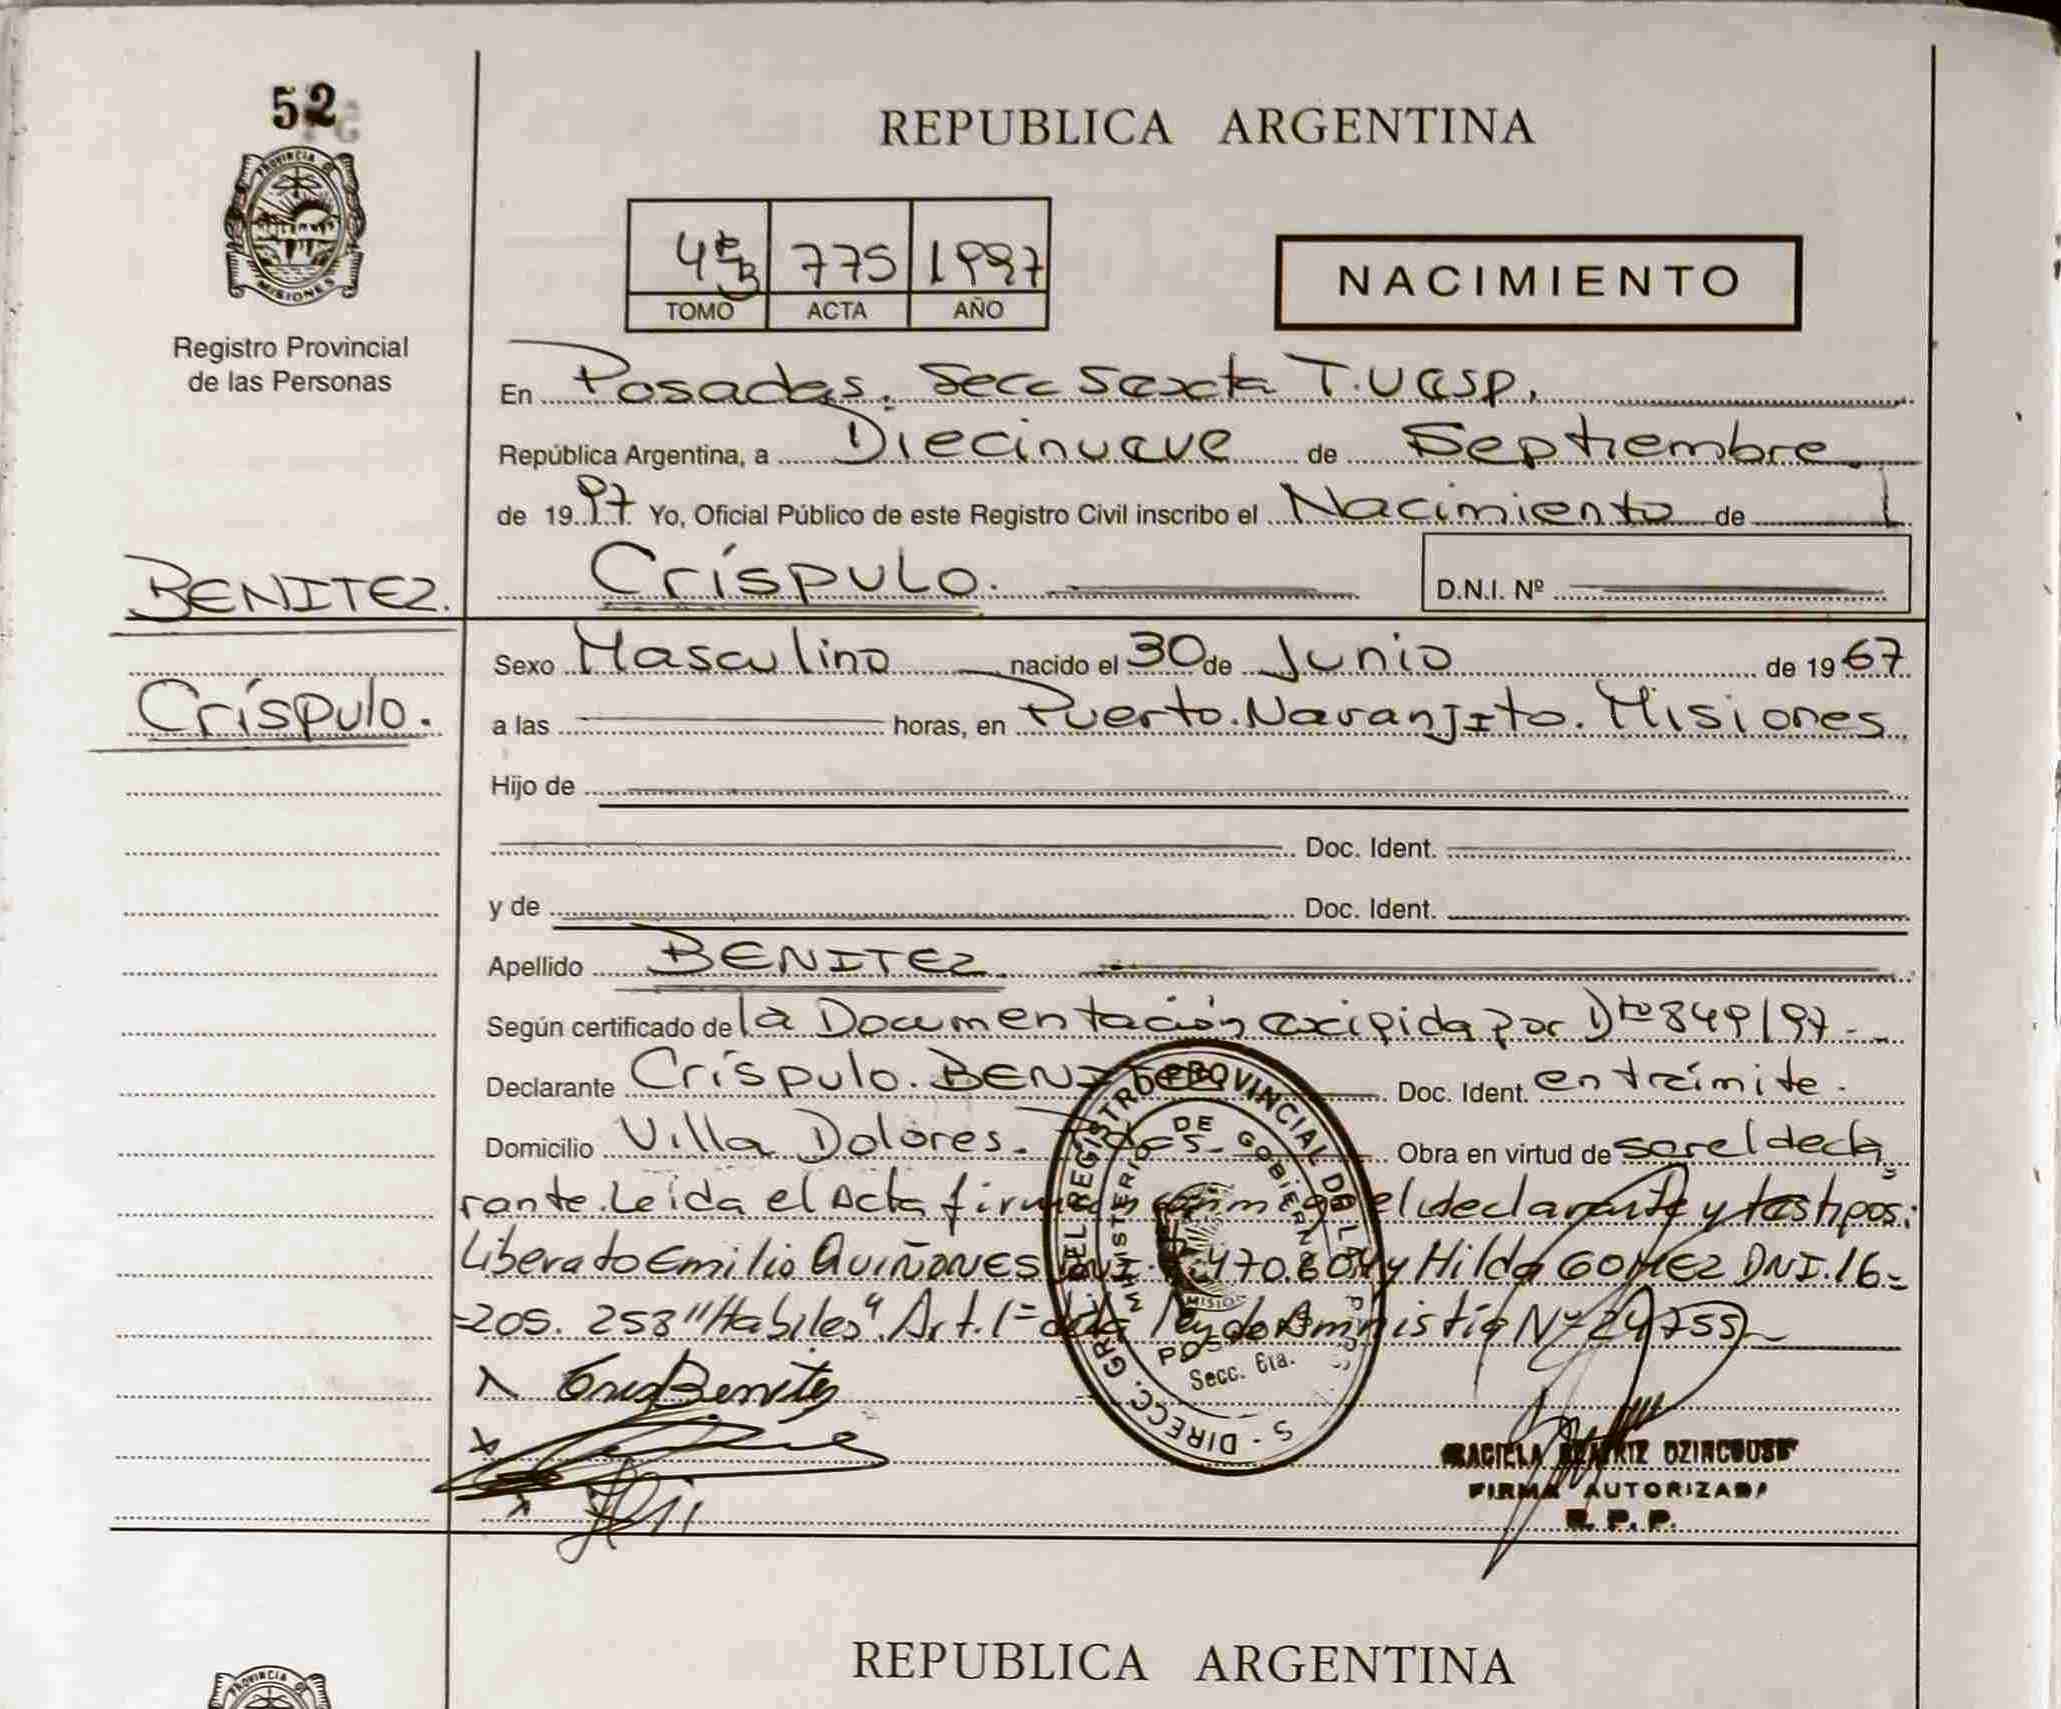 52
REPUBLICA ARGENTINA
PROVINCIA DE
MISIONES
Registro Provincial
de las Personas
775 1997
TOMO ACTA AÑO
NACIMIENTO
En Posadas. Secc Sexta
República Argentina, a Diecinueve de Septiembre
de 1997. Yo, Oficial Público de este Registro Civil inscribo el Nacimiento de
Críspulo.
D.N.I. Nº
BENITEZ.
Críspulo.
Sexo Masculino nacido el 30 de Junio de 1967
a las horas, en Puerto. Naranjito. Misiones
Hijo de
Doc. Ident.
y de Doc. Ident.
Apellido BENITEZ
Según certificado de la Documentación exigida por Dto 849/97-
Declarante Críspulo. BENITEZ Doc. Ident. en trámite.
Domicilio Villa Dolores. Pdas. Obra en virtud de ser el decla
rante. Leída el Acta firman conmigo el declarante y testigos:
Liberato Emilio QUIÑONES DNI 470.804 y Hilda GOMEZ DNI. 16-
-205. 258 "Habiles". Art. 1= de la ley de Amnistía Nº 24755
Benitez
DIRECC. GRAL DEL REGISTRO PROVINCIAL DE LAS
MINISTERIO DE GOBIERNO
Secc. 6ta.
GRACIELA BEATRIZ
FIRMA AUTORIZADA
R. P. P.
REPUBLICA ARGENTINA
PROVINCIA